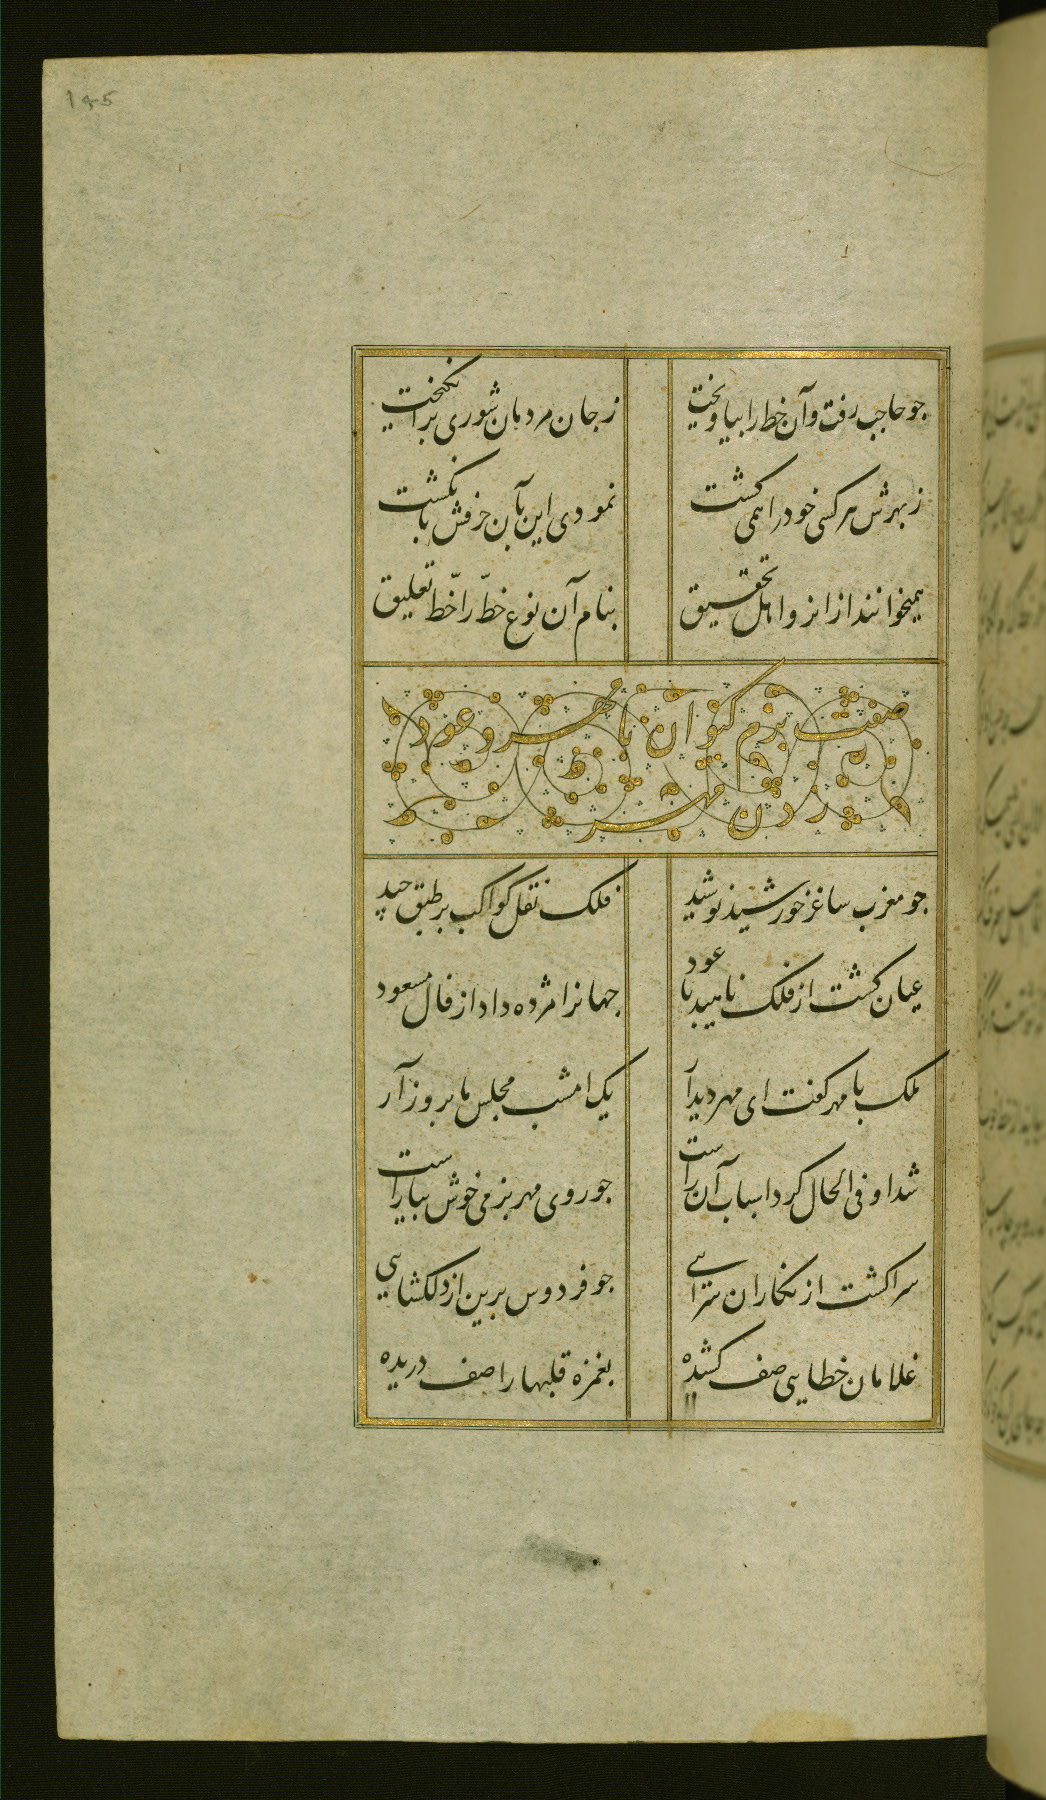 185
جو حاجب رفت و آن خط را بیاویخت
ز جان مردمان شوری برانکیخت
ز بهرش هر کسی خود را همی کشت
نمودی این بآن حرفش بانکشت
همیخوانند ازانرو اهل تحقیق
بنام آن نوع خطّ را خطّ تعلیق
صفت بزم کیوان با مهر و عود
زدن مهر
جو مغرب ساغر خورشید نوشید
فلک نقل کواکب بر طبق چید
عیان کشت از فلک ناهید با عود
جهانرا مژده داد از فال مسعود
ملک با مهر کفت ای مهر دیدار
یک امشب مجلس ما بروز آر
شد او فی الحال کرد اسباب آن راست
جو روی مهر بزمی خوش بیاراست
سرا کشت از نکاران سرایی
جو فردوس برین از دلکشایی
غلامان خطایی صف کشیده
بغمزه قلبها را صف دریده